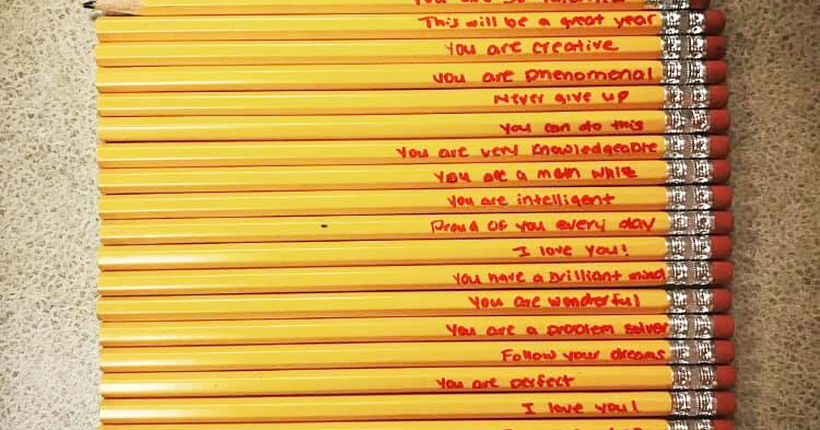 You are so talented
This will be a great year
You are creative
you are phenomenal
Never give up
You can do this
You are very knowledgeable
You are a math whiz
You are intelligent
Proud of you every day
I love you!
You have a brilliant mind
You are wonderful
You are a problem solver
Follow your dreams
You are perfect
I love you!